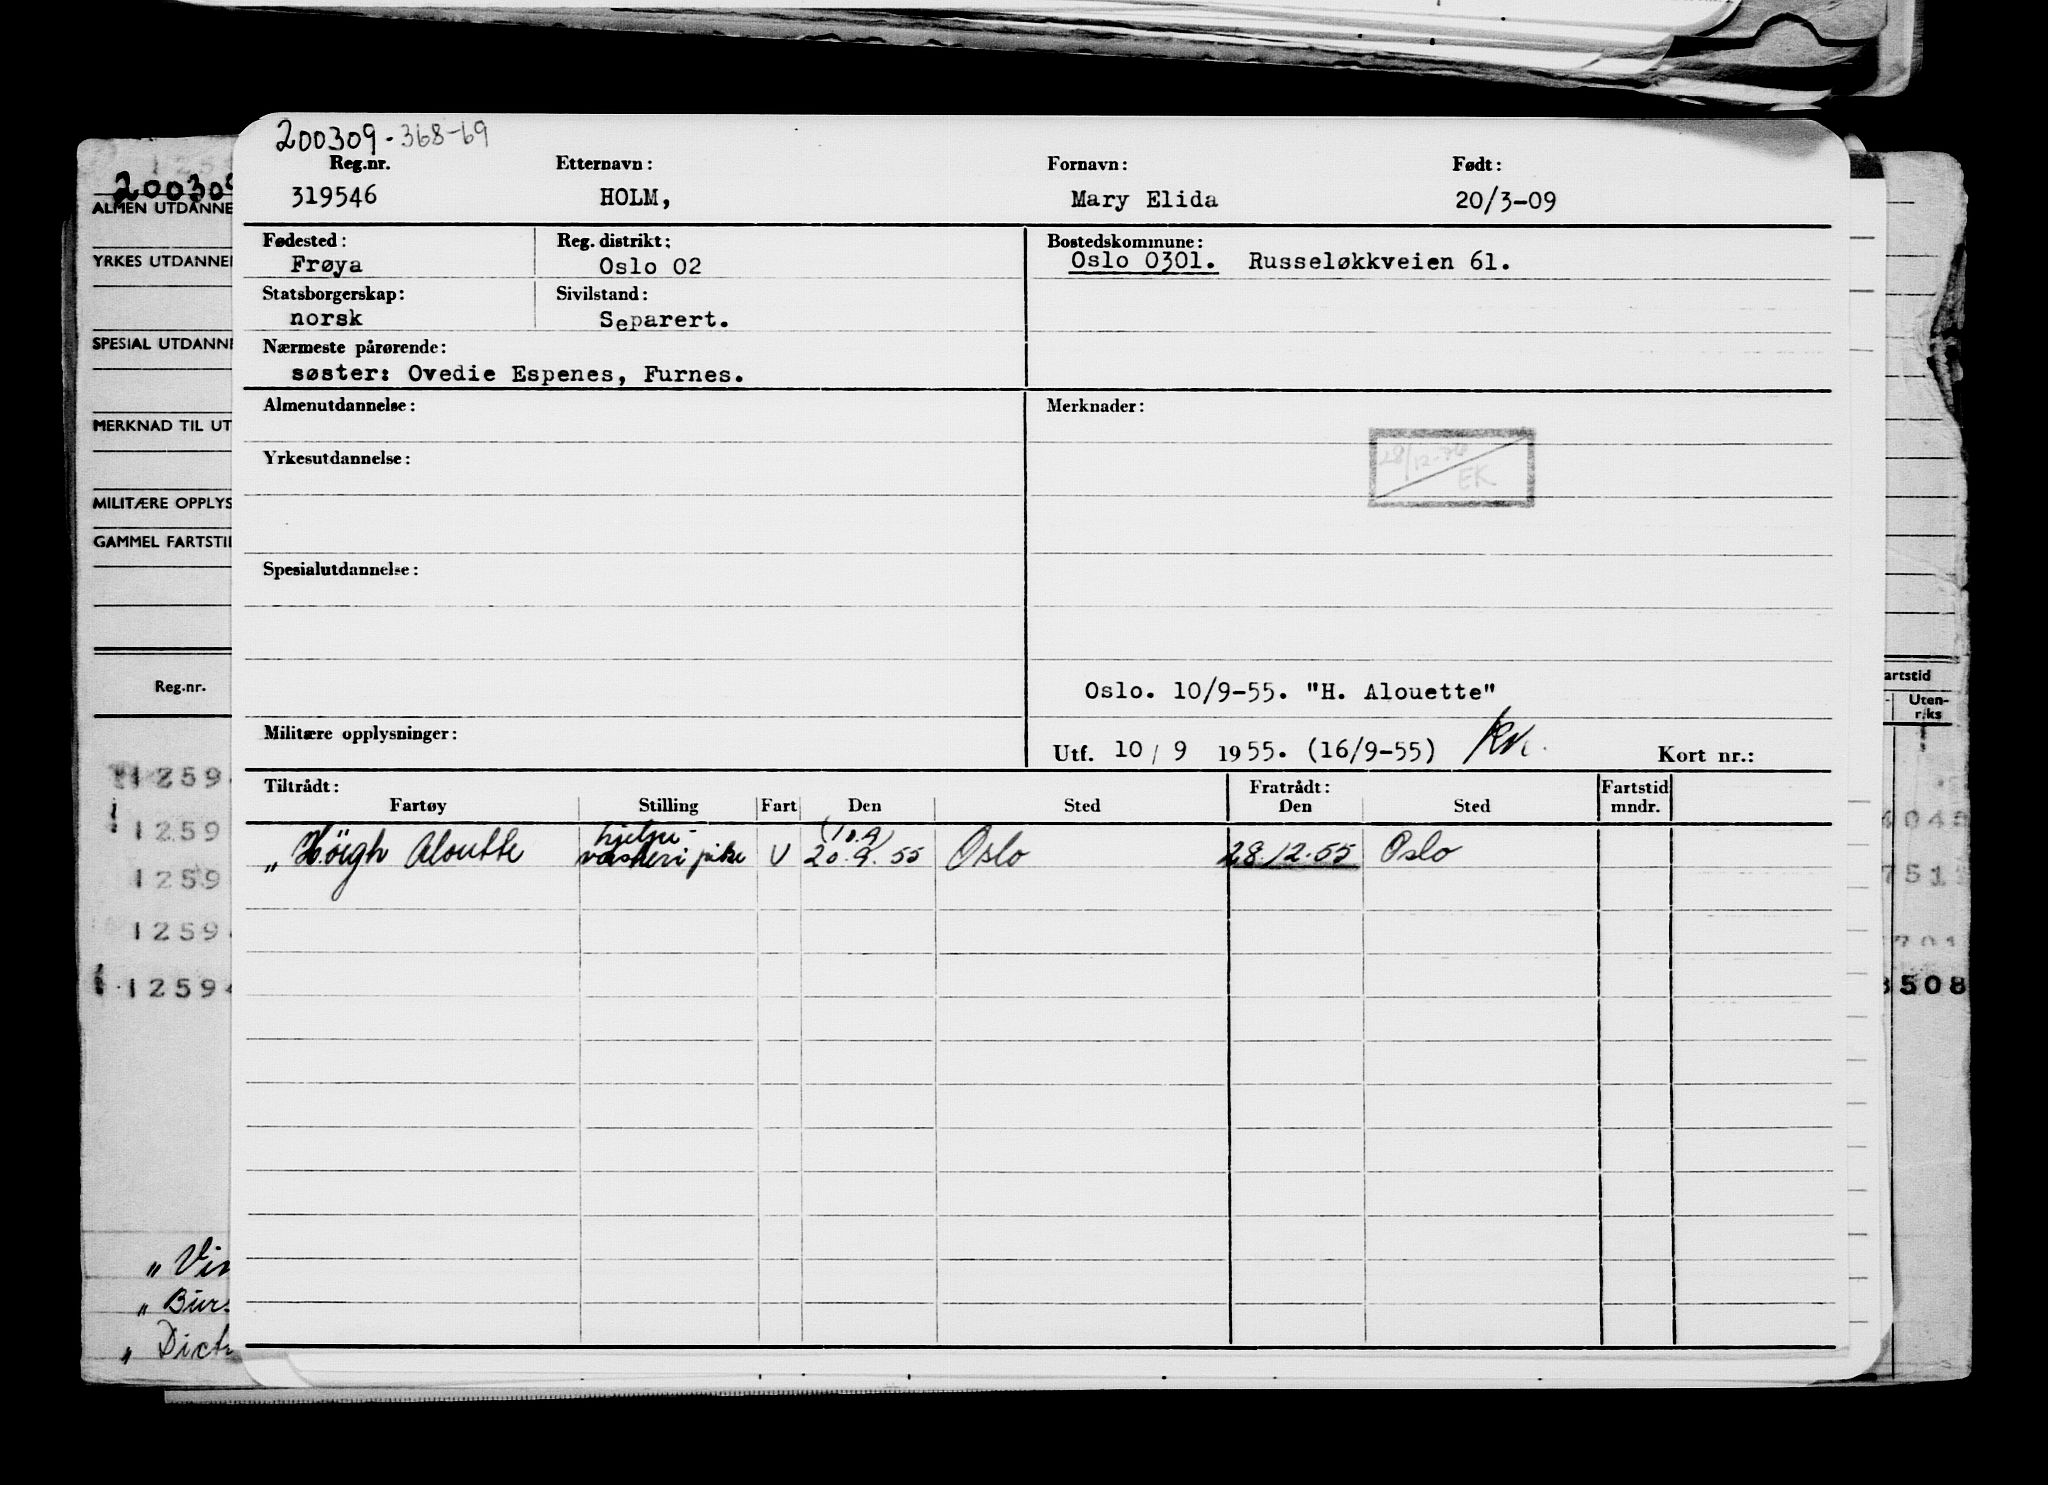 200309-368-69
Reg.nr. Etternavn: Fornavn: Født:
319546 HOLM, Mary Elida 20/3-09
Fødested: Reg. distrikt: Bostedskommune:
Frøya Oslo 02 Oslo 0301. Russeløkkveien 61.
Statsborgerskap: Sivilstand:
norsk Separert.
Nærmeste pårørende:
søster: Ovedie Espenes, Furnes.
Almenutdannelse: Merknader:
28/12-76
EK
Yrkesutdannelse:
Spesialutdannelse:
Oslo. 10/9-55. "H. Alouette"
Militære opplysninger:
Utf. 10/9 1955. (16/9-55) Kort nr.:
Tiltrådt: Fratrådt: Fartstid
Fartøy Stilling Fart Den Sted Den Sted mndr.
hjelpe- (10.9)
„ Höegh Aloutte vaskeri pike U 20.9.55 Oslo 28.12.55 Oslo
200309
ALMEN UTDANNE
YRKES UTDANNE
SPESIAL UTDANN
MERKNAD TIL UT
MILITÆRE OPPLYS
GAMMEL FARTSTI
Reg.nr.
1259
1259
1259
1259
12594
„ Vin
„ Burs
„ Dict
artstid
Uten-
riks
4045
751
701
8508